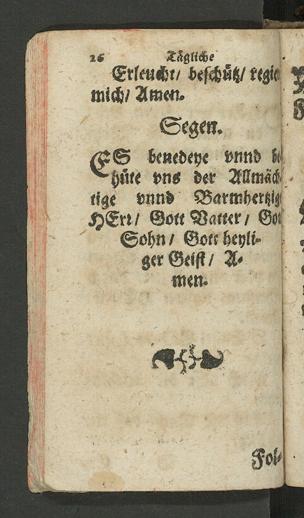 26 Tägliche
Erleucht/ beschütz/ regie
mich/ Amen.
Segen.
ES benedeye vnnd be
hüte vns der Allmäch
tige vnnd Barmhertzig
HErr/ Gott Vatter/ Got
Sohn/ Gott heyli-
ger Geist/ A-
men.
Fol-